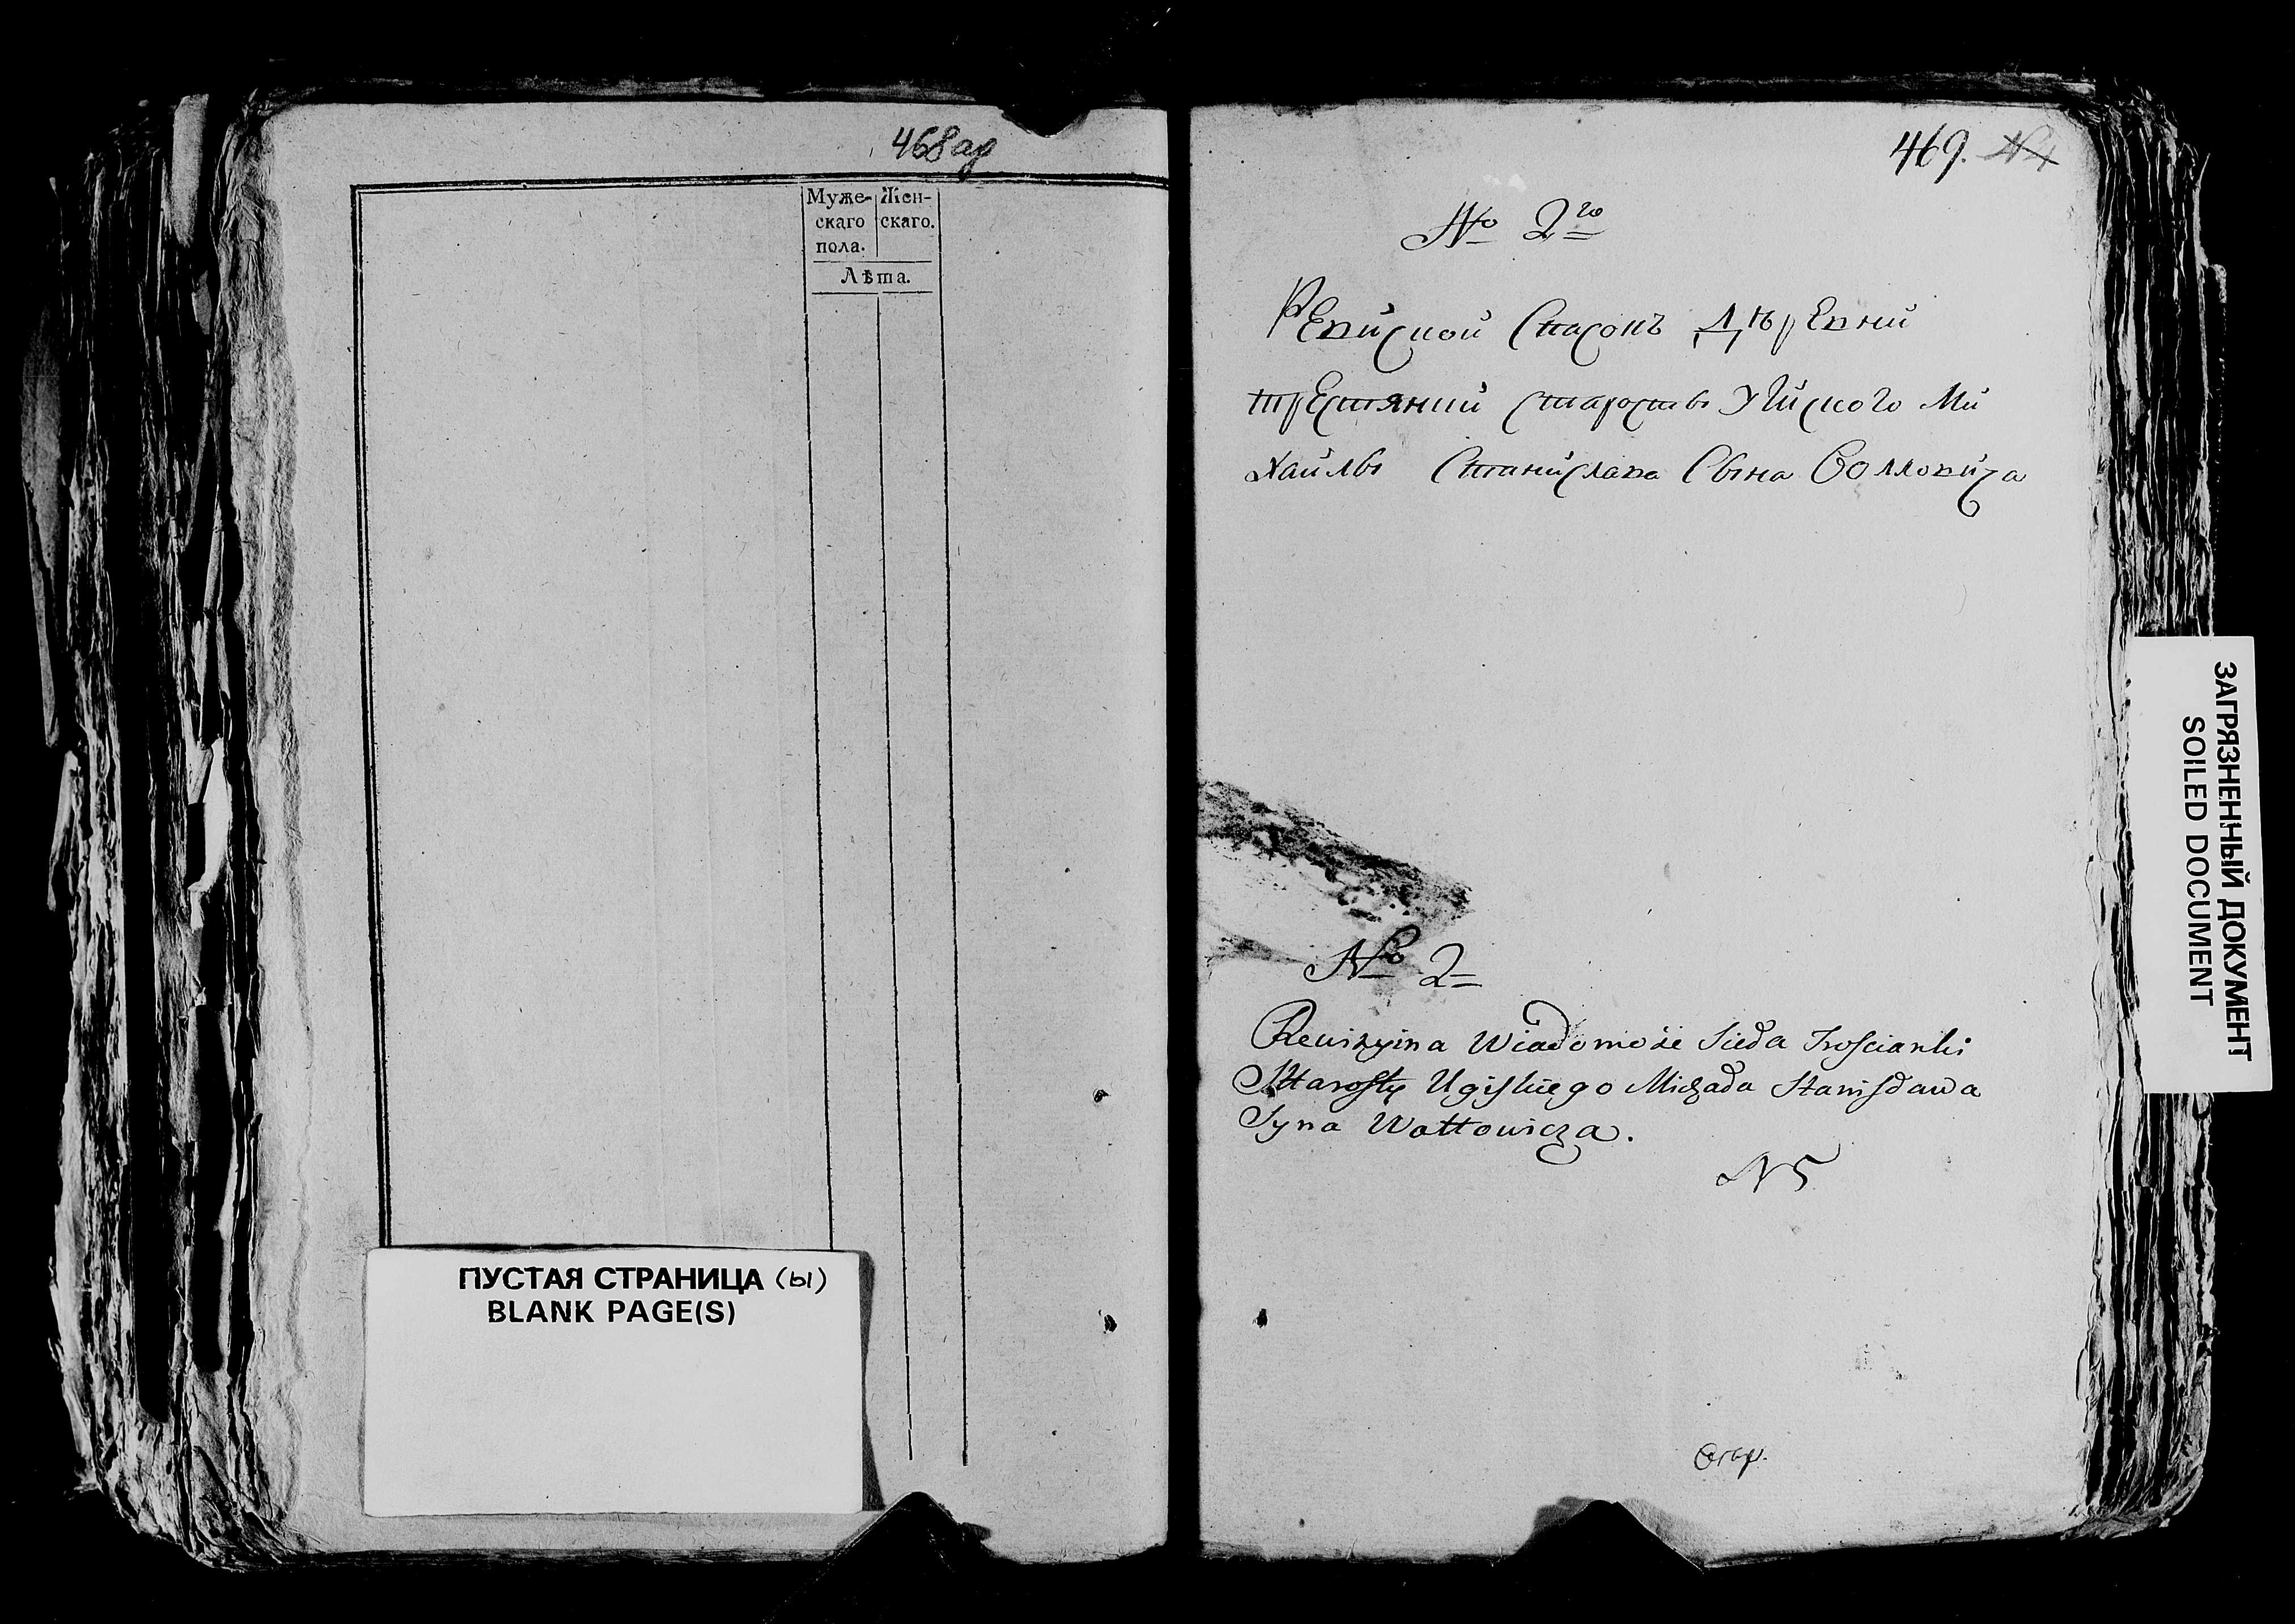 468 ад
Муже- Жен-
скаго скаго.
пола.
Лѣта.
ПУСТАЯ СТРАНИЦА (ы)
BLANK PAGE(S)
469.
No 2го
РЕвиской Сказокъ ДѣрЕвни
трЕстянки старосты Угиского Ми
хайлы Станислава Сына Волловича
No 2
Rewizyina Wiadomośc Sioła Trościanki
Starosty Ugiskiego Michała Stanisława
Syna Wołłowicza.
N 5
ЗАГРЯЗНЕННЫЙ ДОКУМЕНТ
SOILED DOCUMENT